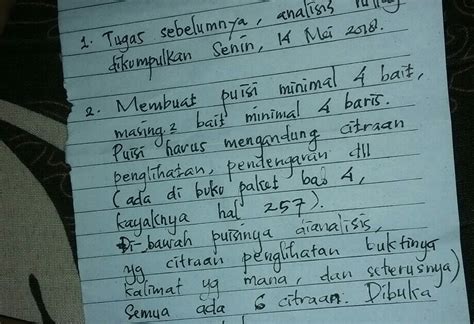 1. Tugas sebelumnya, analisis
dikumpulkan Senin, 14 Mei 2018.
2. Membuat puisi minimal 4 bait,
masing2 bait minimal 4 baris.
Puisi harus mengandung citraan
penglihatan, pendengaran dll
(ada di buku paket bab 4,
kayaknya hal 257).
Di-bawah puisinya dianalisis,
yg citraan penglihatan buktinya
kalimat yg mana, dan seterusnya)
Semua ada 6 citraan. Dibuka